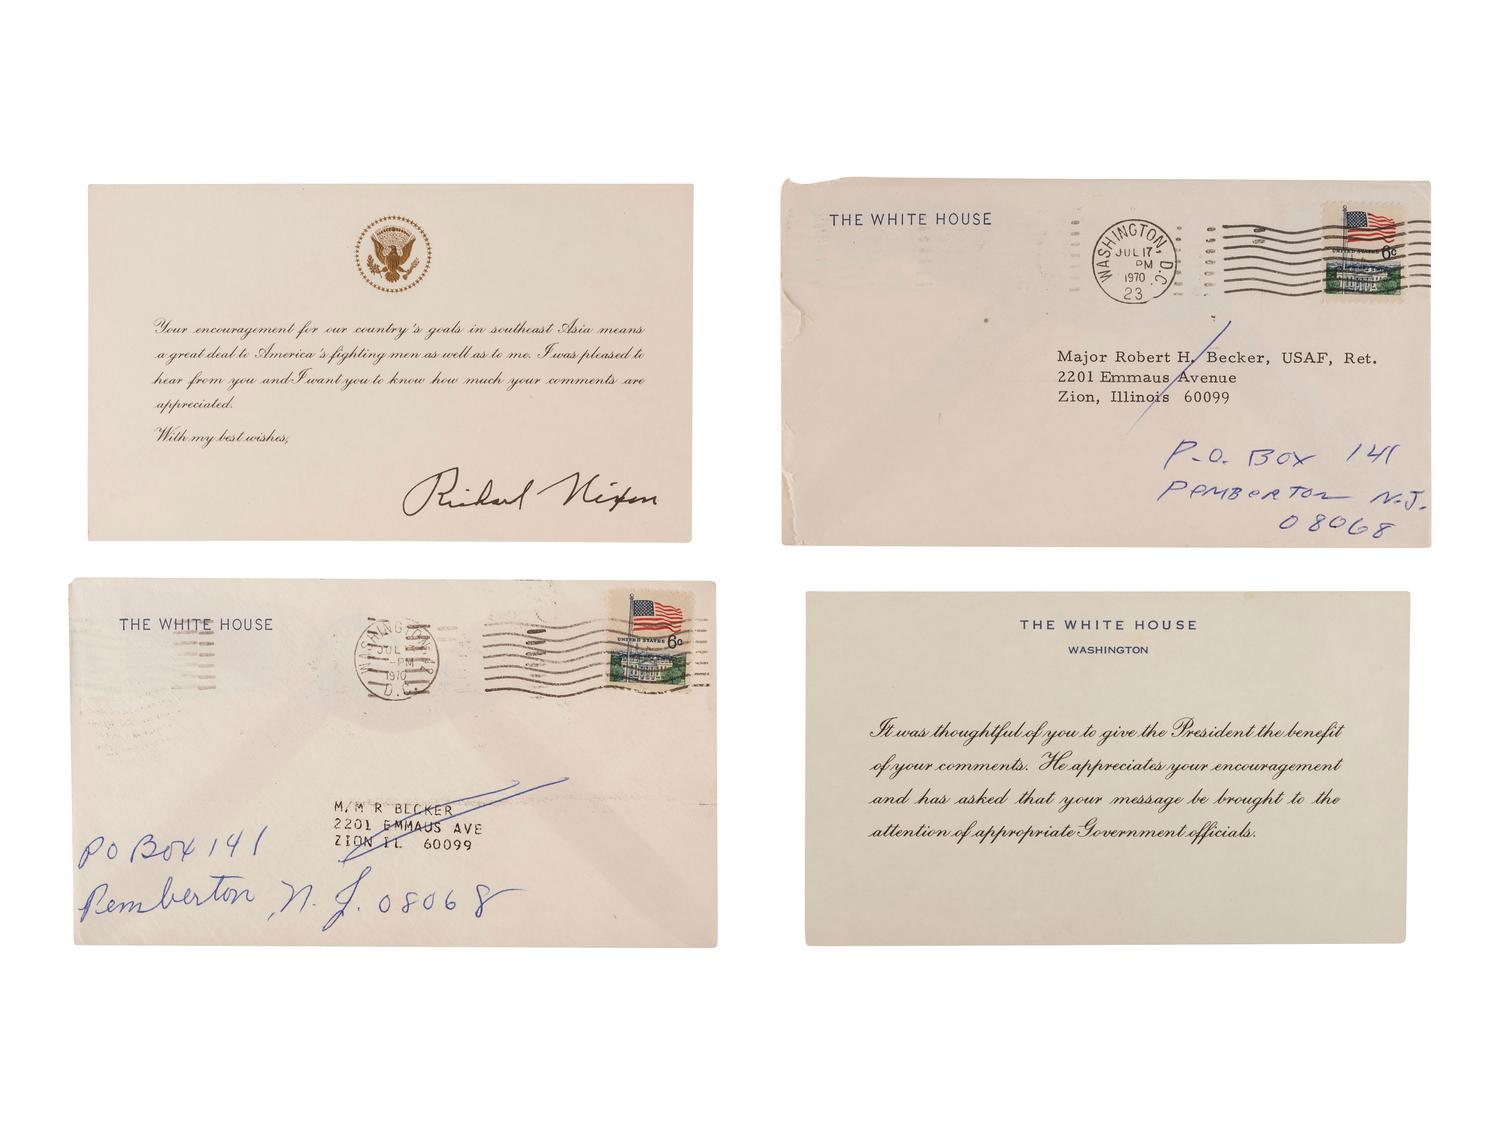 Your encouragement for our country's goals in southeast Asia means
a great deal to America's fighting men as well as to me. I was pleased to
hear from you and I want you to know how much your comments are
appreciated.
With my best wishes,
Richard Nixon
THE WHITE HOUSE
WASHINGTON, D.C.
JUL 17
PM
1970
23
UNITED STATES
6c
Major Robert H. Becker, USAF, Ret.
2201 Emmaus Avenue
Zion, Illinois 60099
P.O. Box 141
PEMBERTON N.J.
08068
THE WHITE HOUSE
WASHINGTON
JUL
PM
1970
D.C.
UNITED STATES
6c
M/M R BECKER
2201 EMMAUS AVE
ZION IL 60099
PO Box 141
Pemberton, N. J. 08068
THE WHITE HOUSE
WASHINGTON
It was thoughtful of you to give the President the benefit
of your comments. He appreciates your encouragement
and has asked that your message be brought to the
attention of appropriate Government officials.